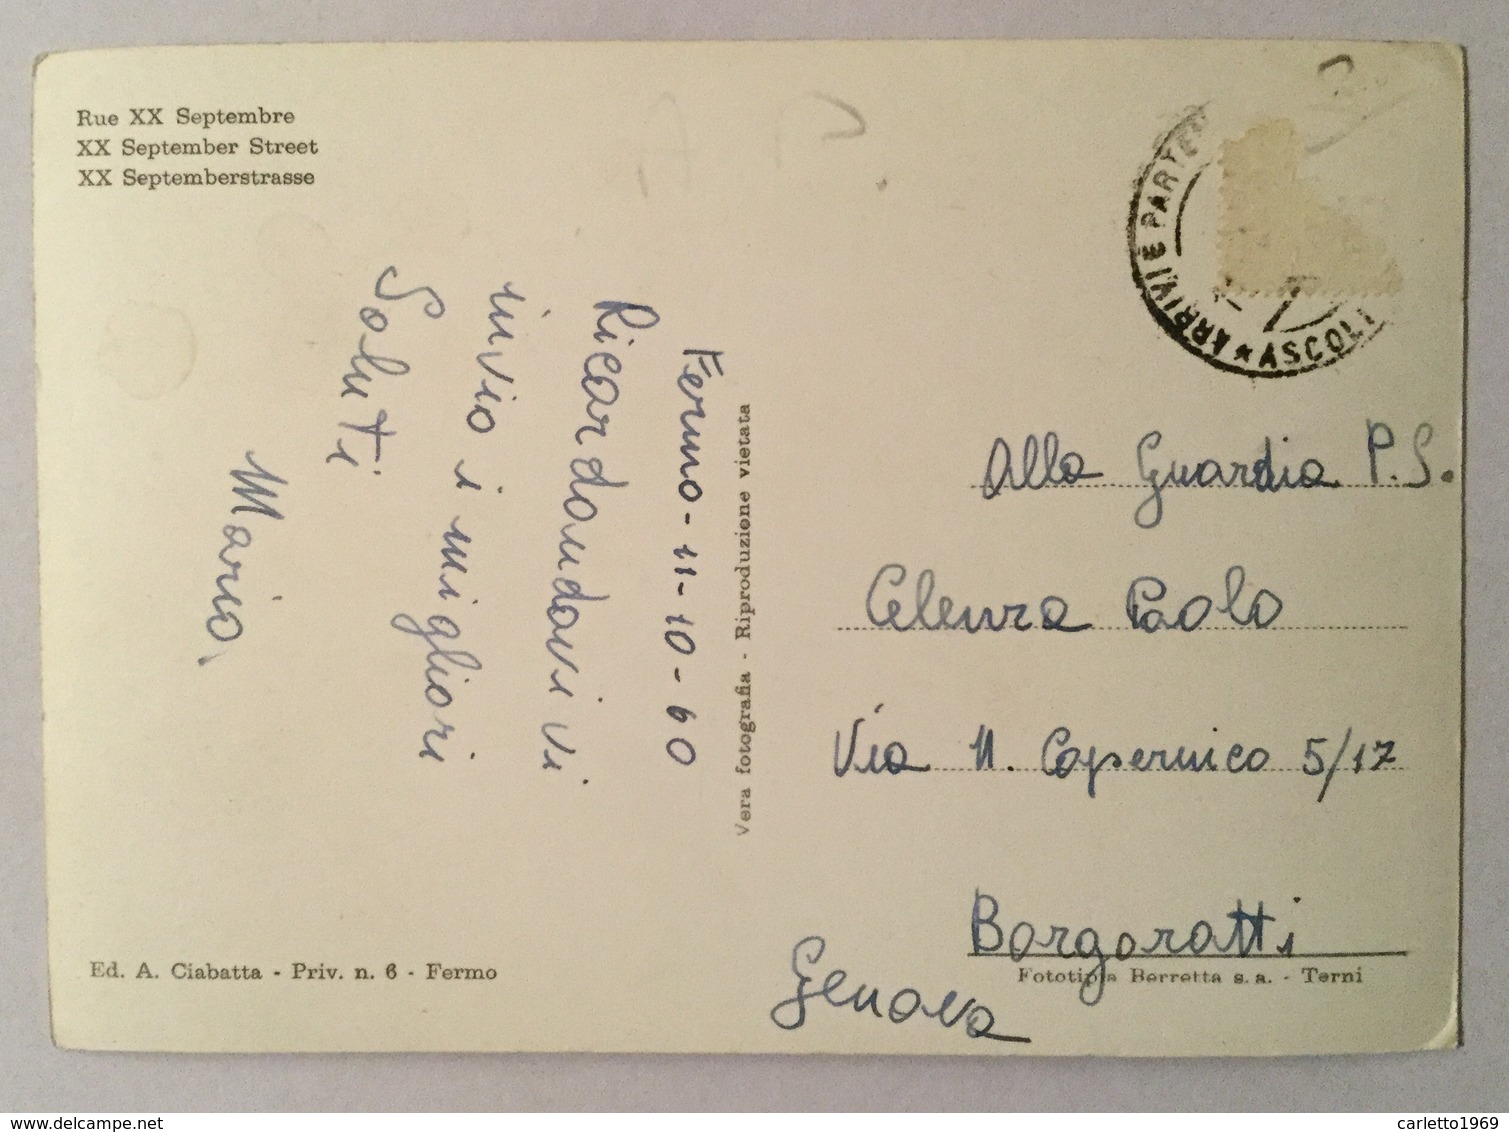 Rue XX Septembre
XX September Street
XX Septemberstrasse
Fermo - 11 - 10 - 60
Ricordandovi vi
invio i migliori
Saluti
Mario.
Vera fotografia - Riproduzione vietata
ARRIVI E PARTEN
★ ASCOLI
Alla Guardia P.S.
Celenza Paolo
Via N. Copernico 5/17
Borgoratti
Genova
Ed. A. Ciabatta - Priv. n. 6 - Fermo
Fototipia Berretta s. a. - Terni
www.delcampe.net
carletto1969